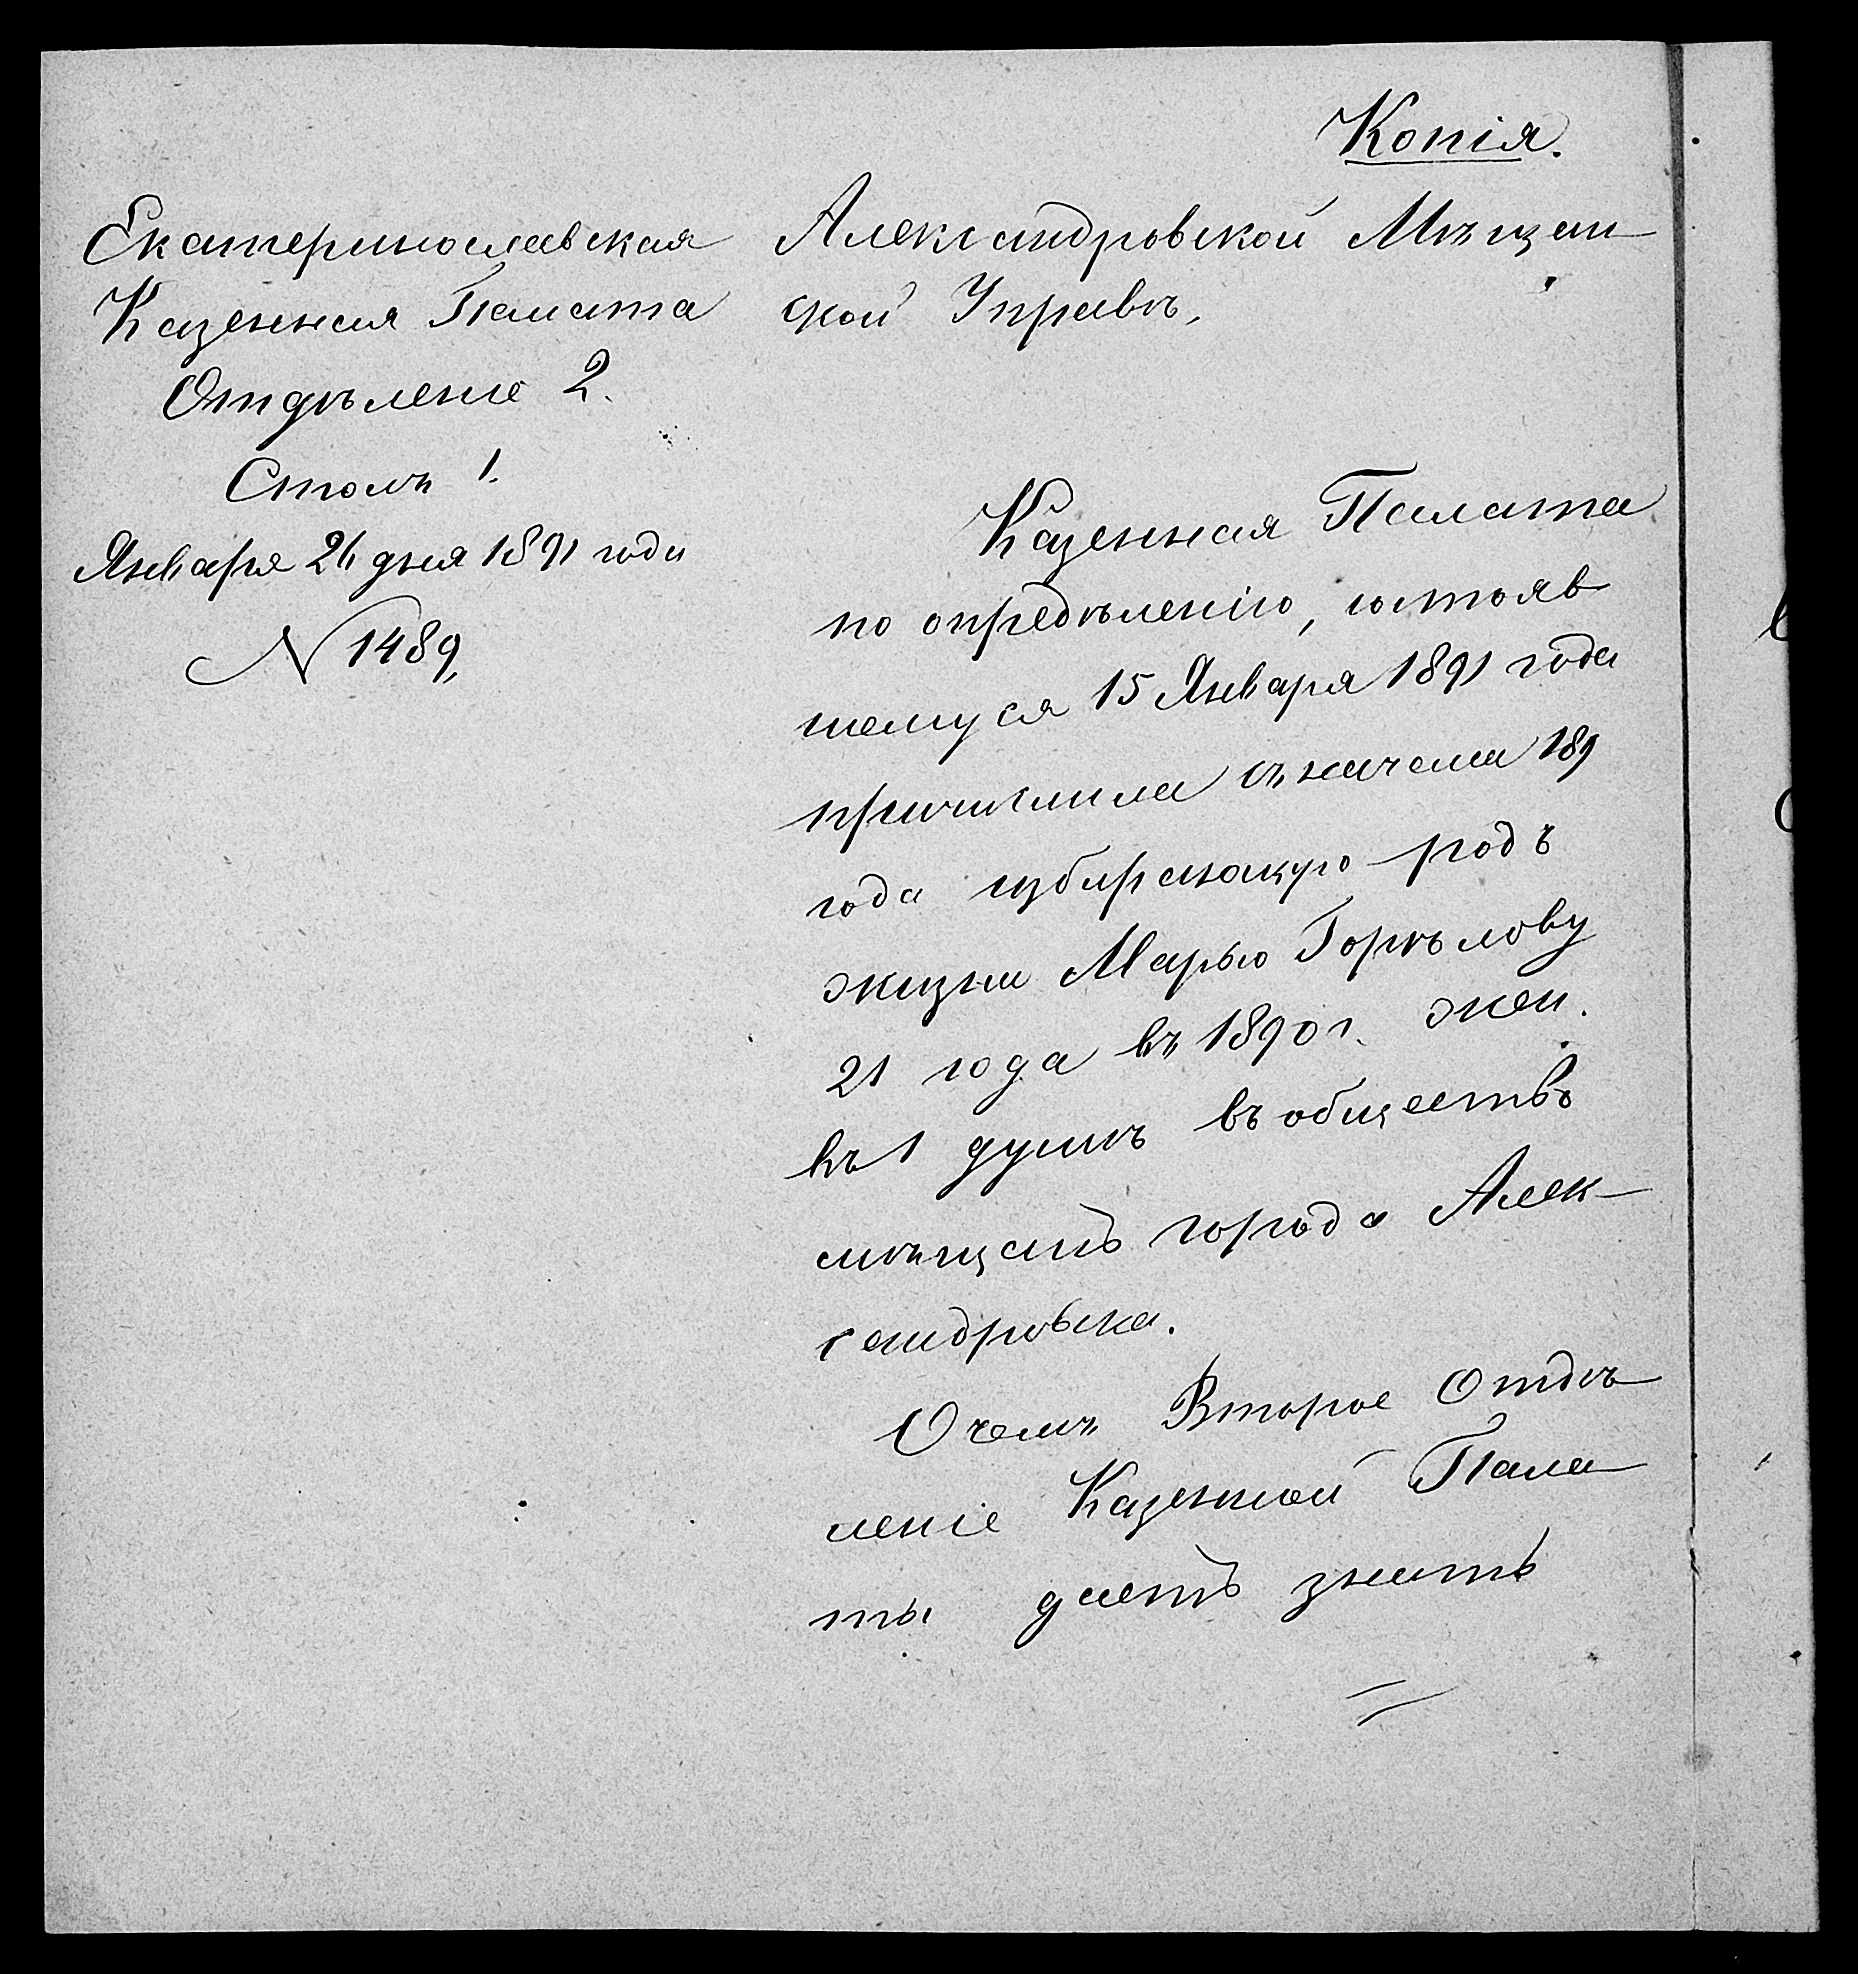 Копія.
Екатеринославская
Казенная Палата
Отдѣленіе 2.
Столъ 1.
Января 26 дня 1891 года
№ 1489,
Александровской Мѣщан
ской Управѣ,
Казенная Палата
по опредѣленію, состояв
шемуся 15 Января 1891 года
причислила съ начала 189
года избирающую родъ
жизни Марью Горѣлову
21 года въ 1890 г. жен.
въ 1 душѣ въ общество
мѣщанъ города Алек-
сандровска.
О чемъ Второе Отдѣ
леніе Казенной Пала
ты даетъ знать